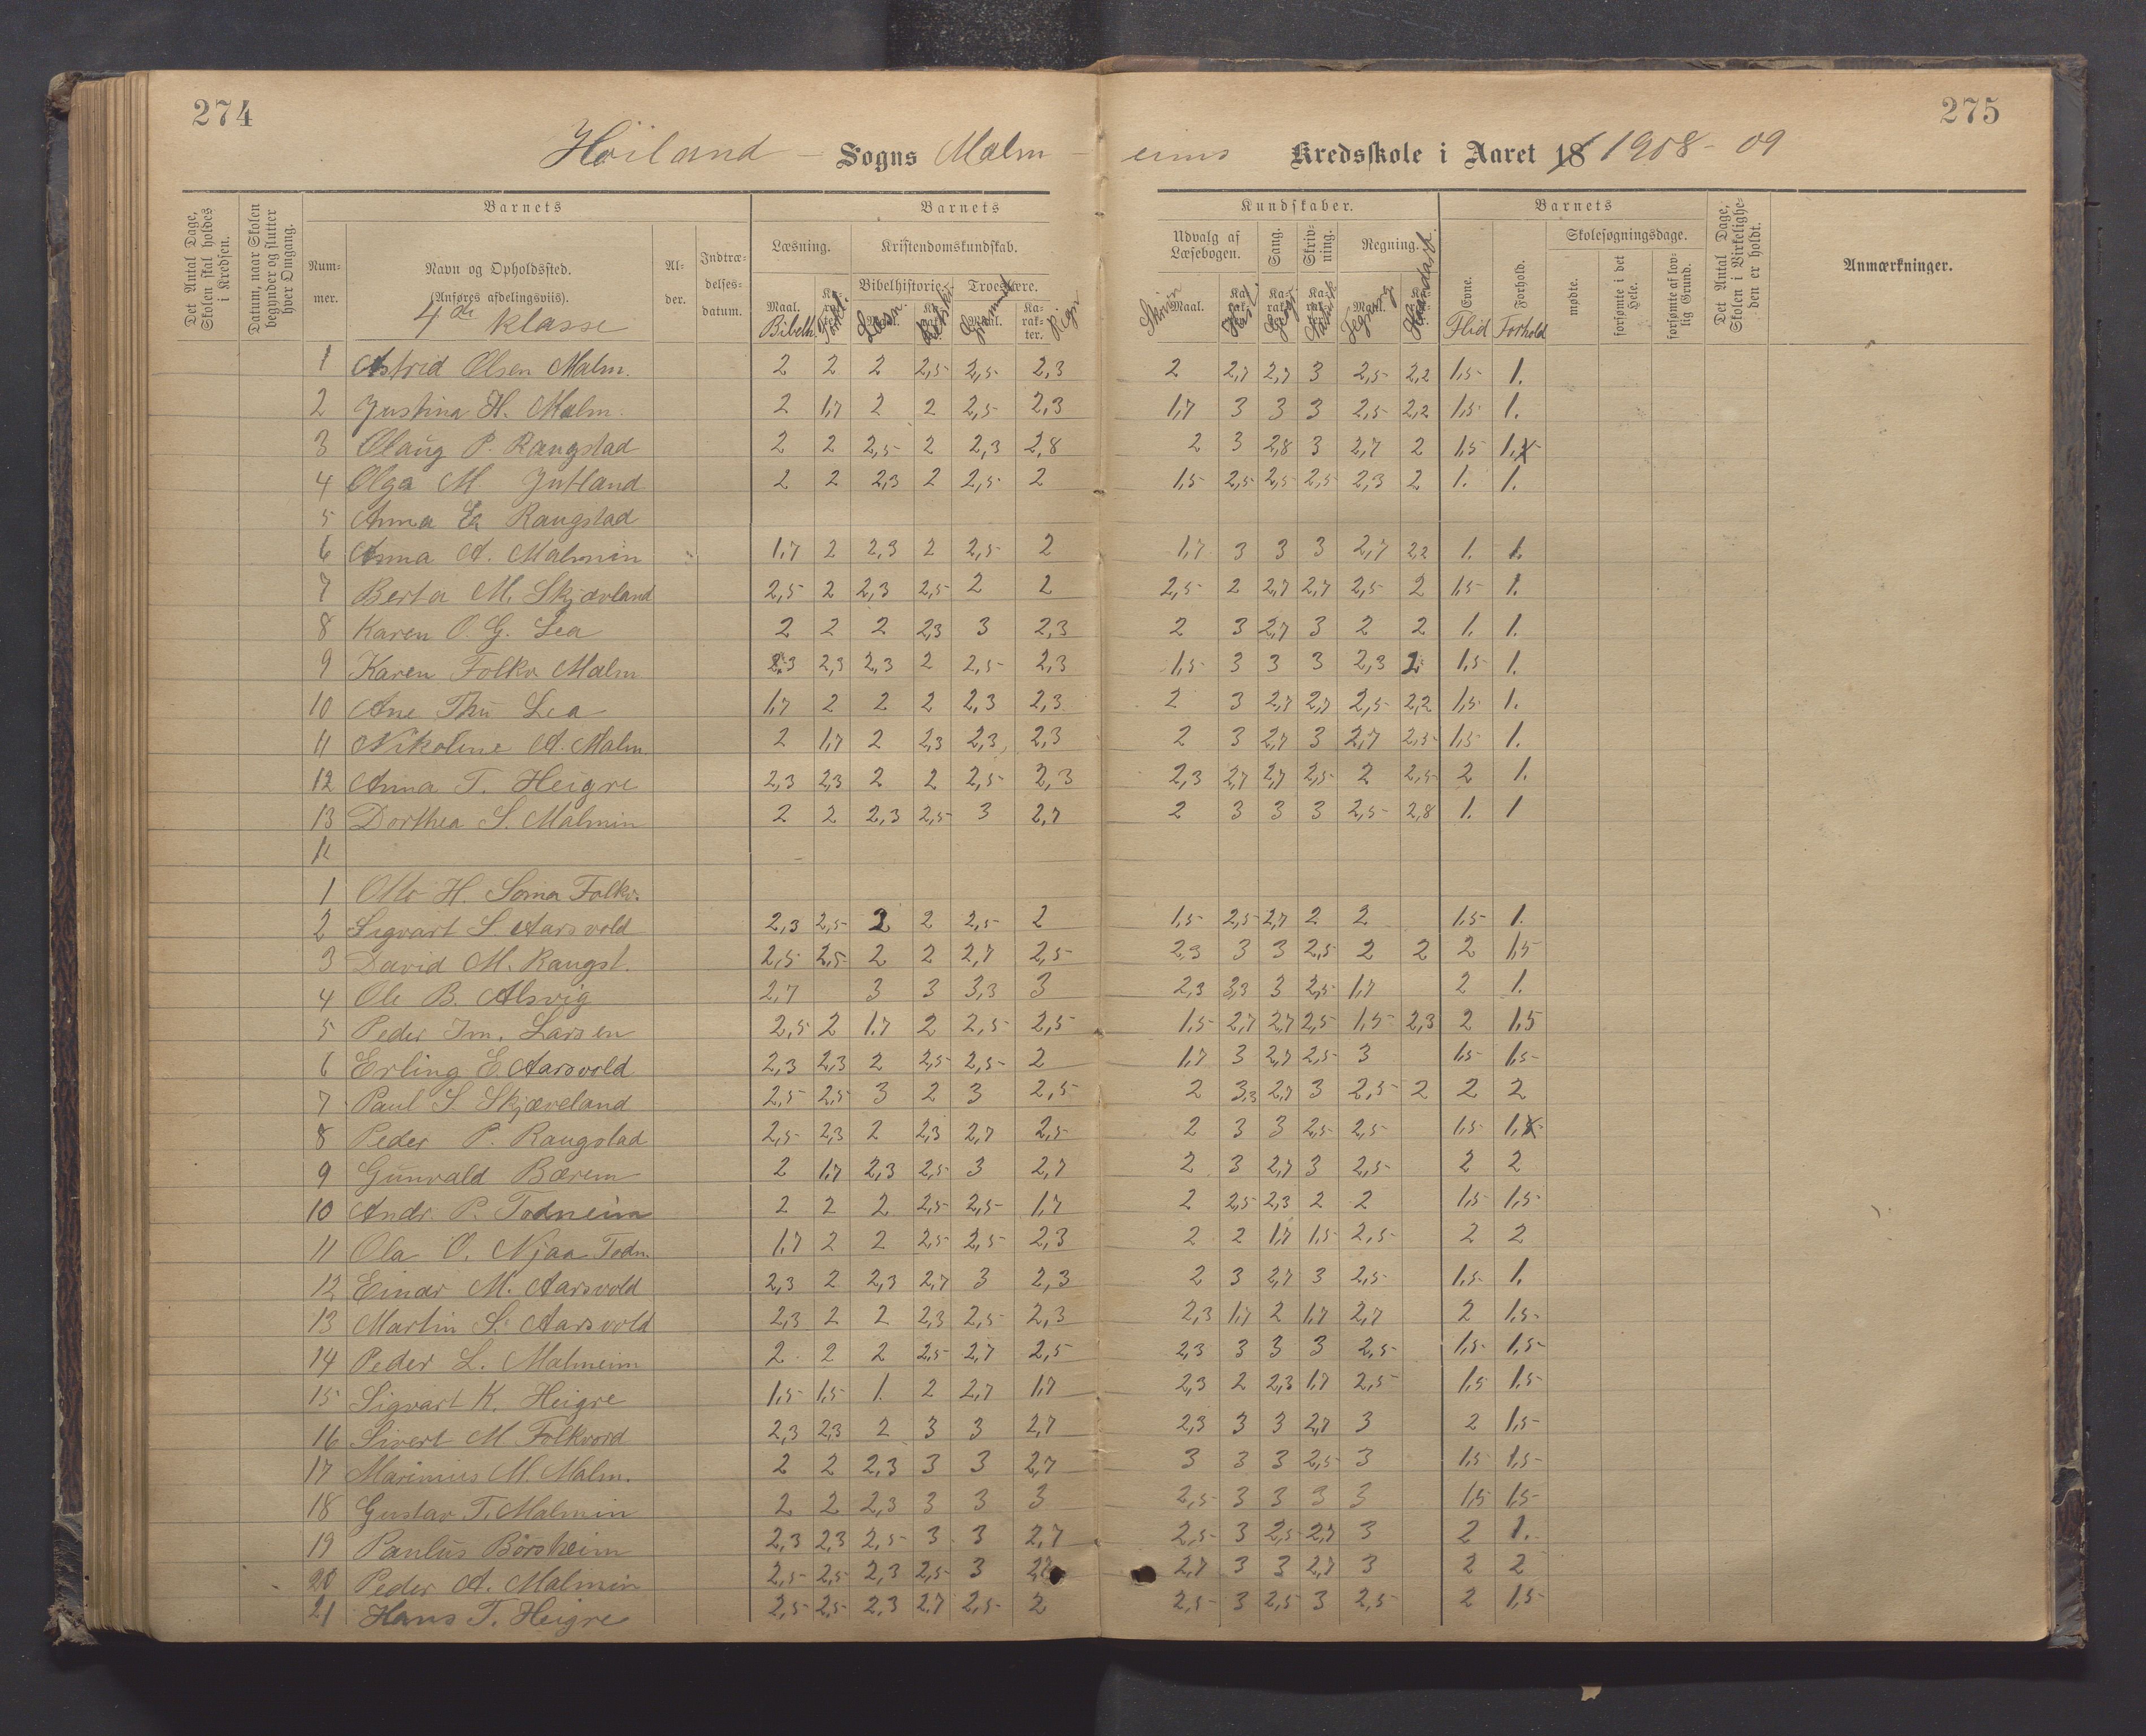 274
275
Höiland – Sogns Malm – eims Kredsskole i Aaret 18 1908 – 09
Det Antal Dage, Skolen skal holdes i Kredsen.
Datum, naar Skolen begynder og slutter hver Omgang.
Barnets
Nummer.
Navn og Opholdssted.
(Anføres afdelingsviis).
4de klasse
Alder.
Indtrædelsesdatum.
Barnets
Læsning.
Kristendomskundskab.
Bibelhistorie.
Troeslære.
Maal.
Karakter.
Bibelh.
Kundskaber.
Udvalg af Læsebogen.
Sang.
Skrivning.
Regning.
Maal.
Barnets
Evne.
Forhold.
Flid Forhold
Skolesøgningsdage.
mødte.
forsømte i det Hele.
forsømte af lovlig Grund.
Det Antal Dage, Skolen i Virkeligheden er holdt.
Anmærkninger.
1 Astrid Olsen Malm. 2 2 2 2,5 2,5 2,3 2 2,7 2,7 3 2,5 2,2 1,5 1.
2 Justina H. Malm. 2 1,7 2 2 2,5 2,3 1,7 3 3 3 2,5 2,2 1,5 1.
3 Olaug P. Raugstad 2 2 2,5 2 2,3 2,8 2 3 2,8 3 2,7 2 1,5 1,
4 Olga M Jutland 2 2 2,3 2 2,5 2 1,5 2,5 2,5 2,5 2,3 2 1. 1.
5 Anna Ea Raugstad
6 Anna A. Malmin 1,7 2 2,3 2 2,5 2 1,7 3 3 3 2,7 2,2 1. 1.
7 Berta M. Skjævland 2,5 2 2,3 2,5 2 2 2,5 2 2,7 2,7 2,5 2 1,5 1.
8 Karen O. G. Lea 2 2 2 2,3 3 2,3 2 3 2,7 3 2 2 1. 1.
9 Karen Folkv Malm 2,3 2,3 2,3 2 2,5 2,3 1,5 3 3 3 2,3 2 1,5 1.
10 Ane Thu Lea 1,7 2 2 2 2,3 2,3 2 3 2,7 2,7 2,5 2,2 1,5 1.
11 Nikoline A. Malm. 2 1,7 2 2,3 2,3 2,3 2 3 2,7 3 2,7 2,5 1,5 1.
12 Anna T. Heigre 2,3 2,3 2 2 2,5 2,3 2,3 2,7 2,7 2,5 2 2,5 2 1.
13 Dorthea S. Malmin 2 2 2,3 2,5 3 2,7 2 3 3 3 2,5 2,8 1. 1
1 Otto H. Soma Folkv.
2 Sigvart S. Aarsvold 2,3 2,5 2 2 2,5 2 1,5 2,5 2,7 2 2 1,5 1.
3 David M. Raugst. 2,5 2,5 2 2 2,7 2,5 2,3 3 3 2,5 2 2 2 1,5
4 Ole B. Alsvig 2,7 3 3 3,3 3 2,3 3,3 3 2,5 1,7 2 1.
5 Peder Im. Larsen 2,5 2 1,7 2 2,5 2,5 1,5 2,7 2,7 2,5 1,5 2,3 2 1,5
6 Erling E. Aarsvold 2,3 2,3 2 2,5 2,5 2 1,7 3 2,7 2,5 3 1,5 1,5
7 Paul S. Skjæveland 2,5 2,5 3 2 3 2,5 2 3,3 2,7 3 2,5 2 2 2
8 Peder P. Raugstad 2,5 2,3 2 2,3 2,7 2,5 2 3 3 2,5 2,5 1,5 1,
9 Gunvald Bærem 2 1,7 2,3 2,5 3 2,7 2 3 2,7 3 2,5 2 2
10 Andr. P. Todneim 2 2 2 2,5 2,5 1,7 2 2,5 2,3 2 2 1,5 1,5
11 Ola O. Njaa Todn. 1,7 2 2 2,5 2,5 2,3 2 2 1,7 1,5 2,5 2 2
12 Einar M. Aarsvold 2,3 2 2,3 2,7 3 2,3 2 3 2,7 3 2,5 1,5 1.
13 Martin S. Aarsvold 2,3 2 2 2,3 2,5 2,3 2,3 1,7 2 1,7 2,7 2 1,5
14 Peder L. Malmeim 2 2 2 2,5 2,7 2,5 2,3 3 3 3 2,5 1,5 1,5
15 Sigvart K. Heigre 1,5 1,5 1. 2 2,7 1,7 2,3 2 2,3 1,7 2,5 1,5 1,5
16 Sivert M Folkvord 2,3 2,3 2 3 3 2,7 2,3 3 3 2,7 3 2 1,5
17 Marinius M. Malm. 2 2 2,3 3 3 2,7 3 3 3 2,5 3 1,5 1,5
18 Gustav T. Malmin 2 2 2,3 3 3 3 2,5 3 3 3 3 1,5 1,5
19 Paulus Börsheim 2,3 2,3 2,5 3 3 2,7 2,5 3 2,5 2,7 3 2 1.
20 Peder A. Malmin 2,5 2,5 2,3 2,5 3 2,7 3 3 2,7 3 2 2
21 Hans T. Heigre 2,5 2,5 2,3 2,7 2,5 2 2,5 3 2,5 3 2,5 2 1,5